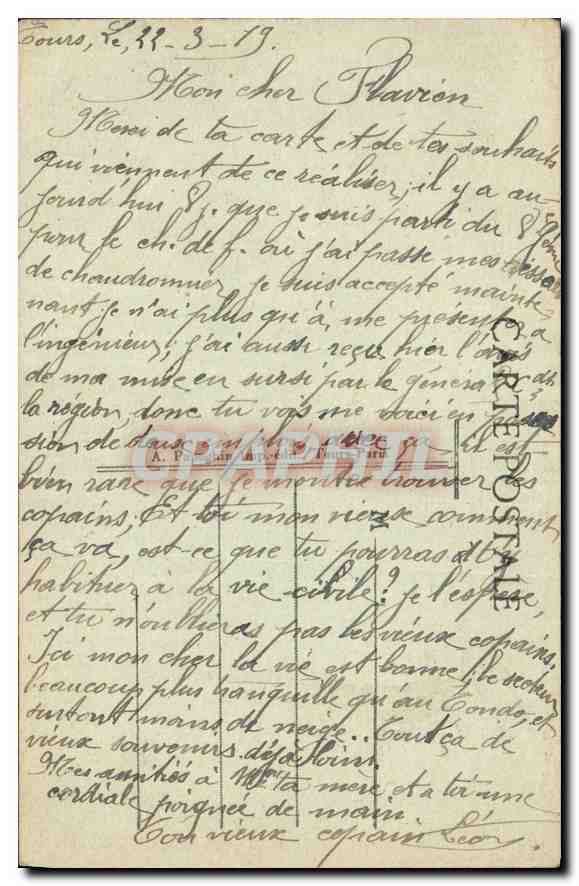 Tours, Le, 22-3-19.
Mon cher Flavien
Merci de ta carte et de tes souhaits
qui viennent de ce réaliser, il y a au-
jourd'hui 8 j. que je suis parti du 8e Génie
pour le ch. de f. où j'ai passé mes
de chaudronnier, je suis accepté mainte-
nant je n'ai plus qu'à me présenter à
l'ingénieur; j'ai aussi reçu hier l'avis
de ma mise en sursi par le général Ct
la région, donc tu vois me voici en
sion de
A. Papeghin Imp.-édit. Tours-Paris
bien rare que je trouver des
copains, Et toi mon vieux comment
ça va, est-ce que tu pourras
habituer à la vie civile? je l'espère,
et tu n'oublieras pas les vieux copains.
Ici mon cher la vie est bonne, le secteur
beaucoup plus tranquille qu'au et
surtout moins de neige.. Tout ça de
vieux souvenirs déjà loin.
Mes amitiés à Mme ta mère et à toi une
cordiale poignée de main
Ton vieux copain Léon.
CARTE POSTALE
M
CARPHILA